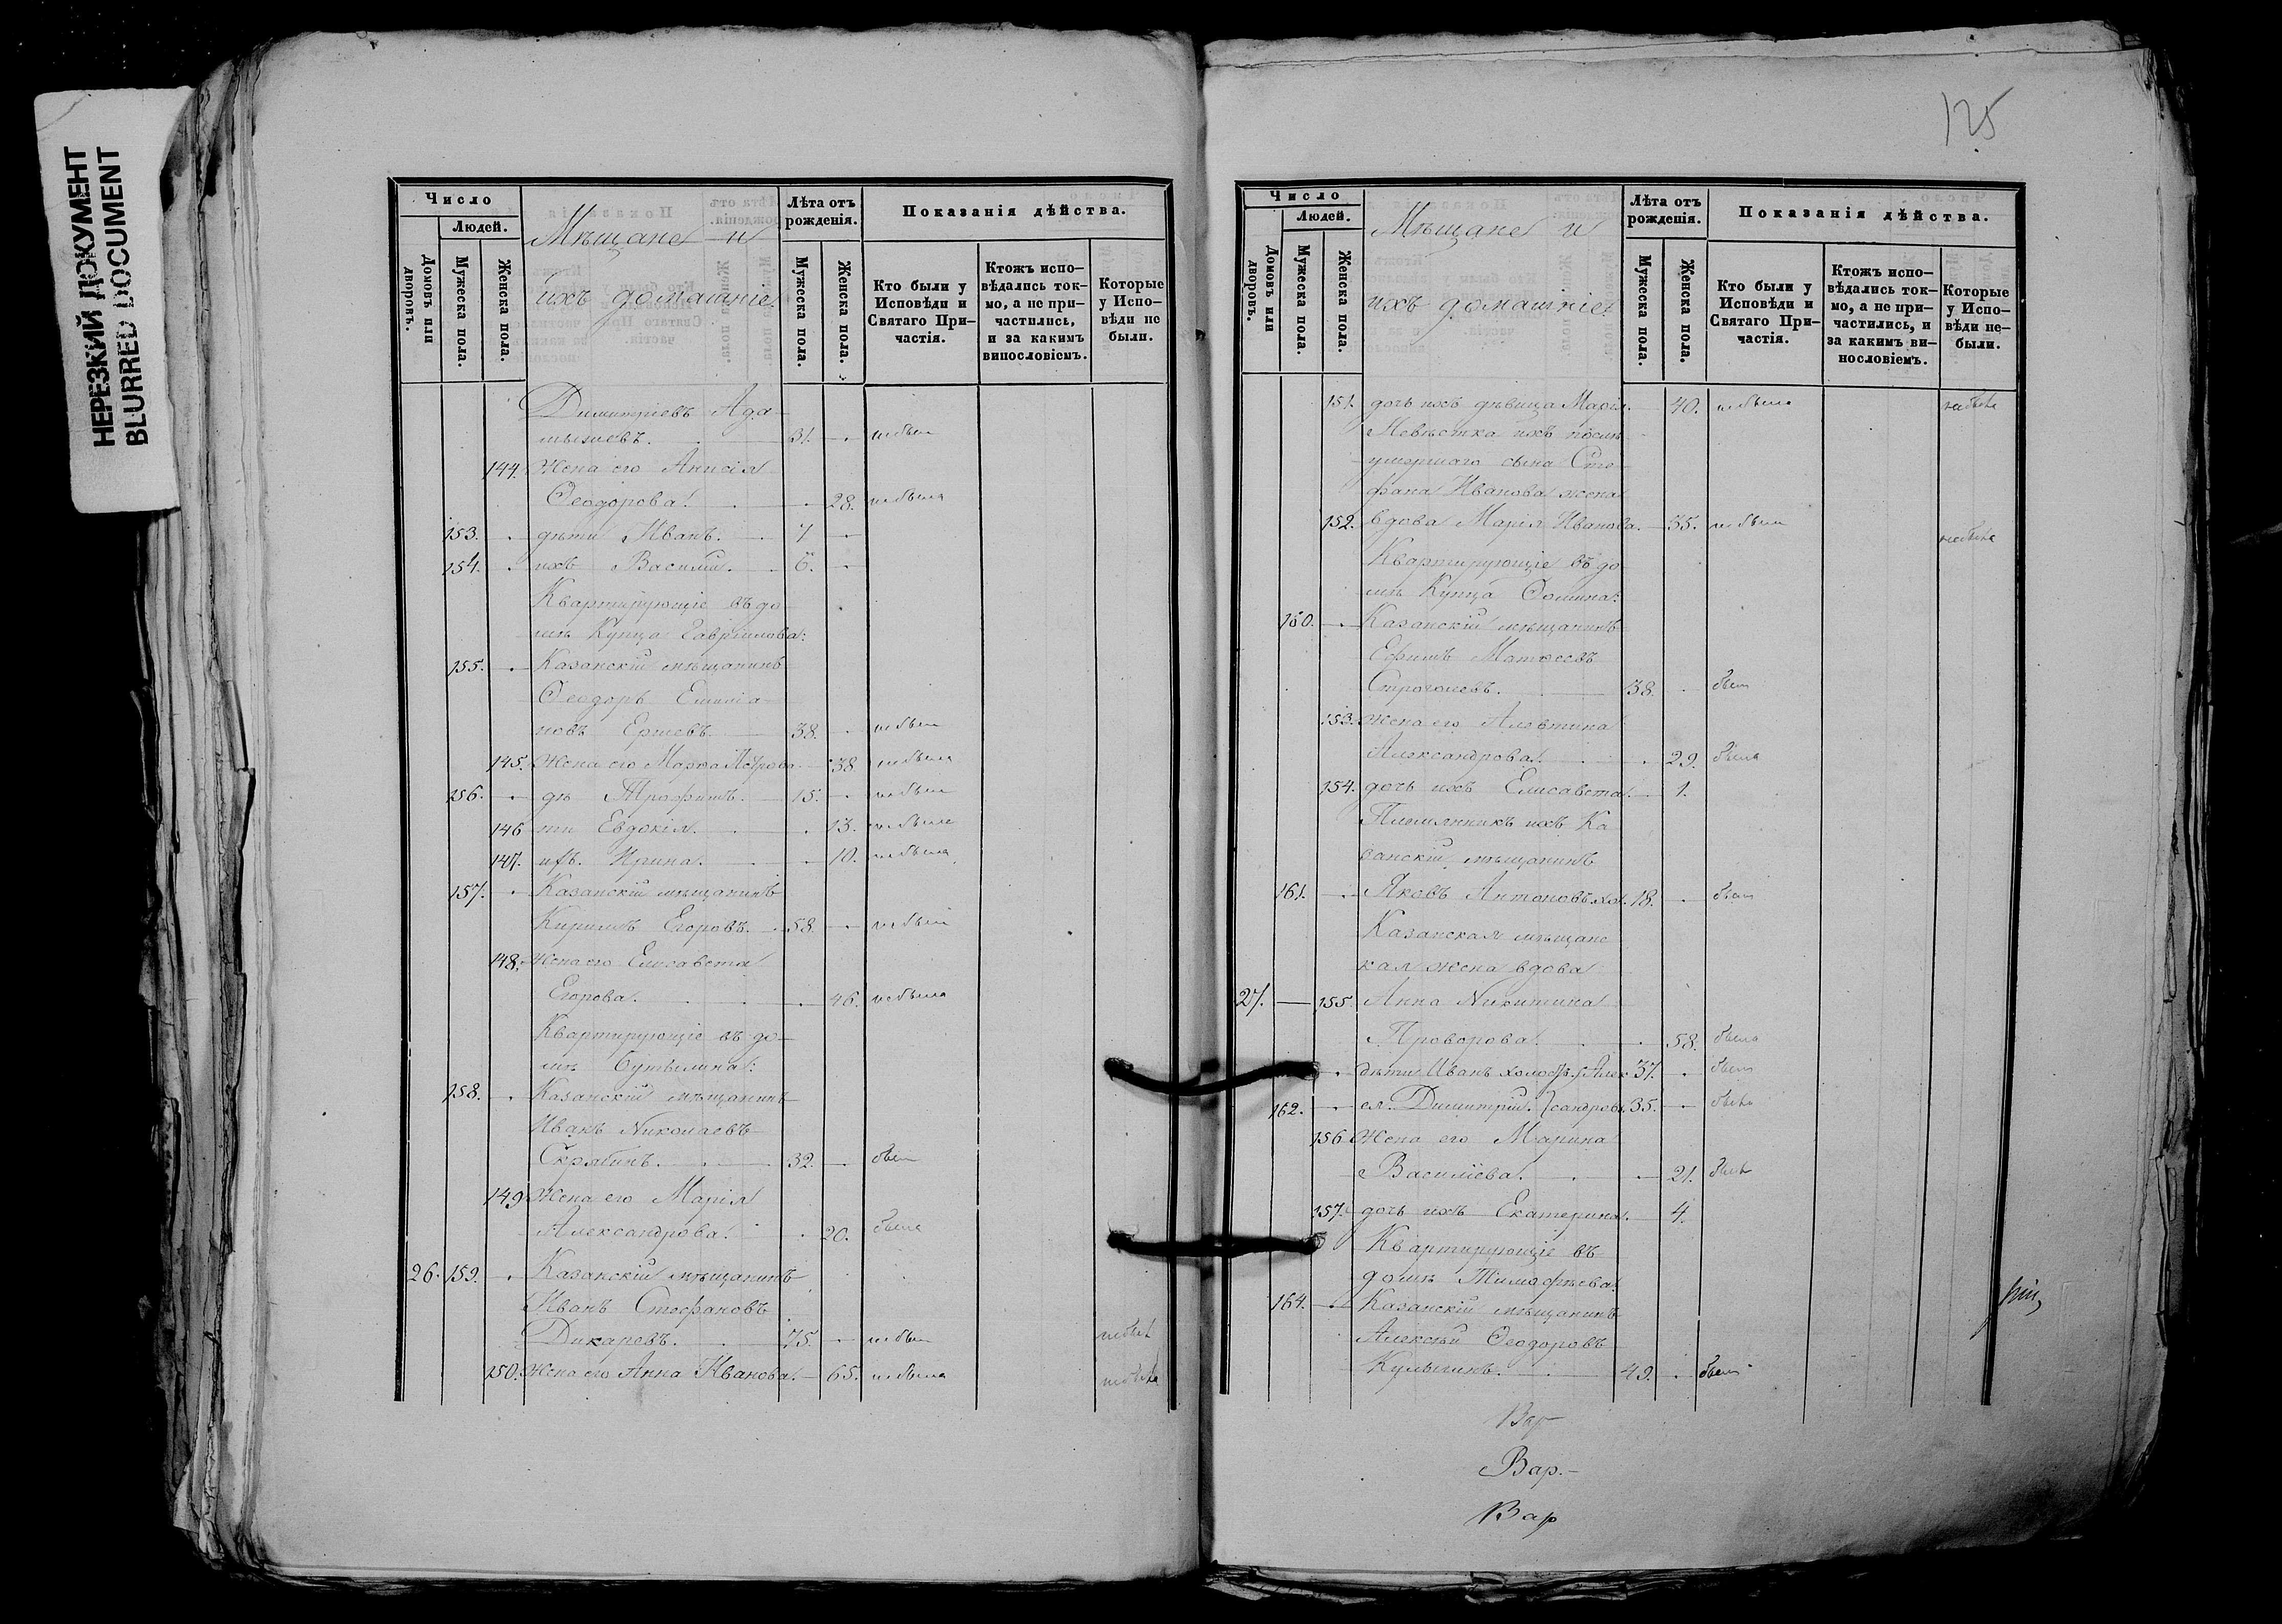 НЕРЕЗКИЙ ДОКУМЕНТ
BLURRED DOCUMENT
Число
Людей.
Домовъ или дворовъ.
Мужеска пола.
Женска пола.
Мѣщане и
ихъ домашніе
Лѣта отъ рожденія.
Мужеска пола.
Женска пола.
Показанія дѣйства.
Кто были у Исповѣди и Святаго При-частія.
Ктожъ испо-вѣдались ток-мо, а не при-частились, и за какимъ винословіемъ.
Которые у Испо-вѣди не были.
Димитріевъ Ада-
31. небылъ
144. Жена его Анисія
Ѳеодорова. 28. небыла
153. дѣти Иванъ. 7
154. ихъ Василій. 6.
Квартирующіе въ до-
мѣ Купца Гавриилова:
155. Казанскій мѣщанинъ
Ѳеодоръ Емилiа-
новъ Ершевъ. 38. небылъ
145. Жена его Марѳа Петрова 38 небыла
156. дѣ Трофимъ. 15. небылъ
146 ти Евдокія. 13. небыла
147. ихъ. Ирина. 10. небыла
157. Казанскій мѣщанинъ
Кириллъ Егоровъ. 58. небылъ
148. Жена его Елисавета
Егорова. 46. небыла
Квартирующіе въ до-
мѣ Бутылина:
158. Казанскій мѣщанинъ
Иванъ Николаевъ
Скрябинъ. 32. былъ
149 Жена его Марія
Александрова. 20. была
26. 159. Казанскій мѣщанинъ
Иванъ Стефановъ
Дикаревъ. 75. небылъ небылъ
150. Жена его Анна Иванова. 65. небыла небыла
125
Число
Людей.
Домовъ или дворовъ.
Мужеска пола.
Женска пола.
Мѣщане и
ихъ домашніе
Лѣта отъ рожденія.
Мужеска пола.
Женска пола.
Показанія дѣйства.
Кто были у Исповѣди и Святаго При-частія.
Ктожъ испо-вѣдались ток-мо, а не при-частились, и за какимъ ви-нословіемъ.
Которые у Испо-вѣди не-были.
151. дочь ихъ дѣвица Марія. 40. небыла небыла
Невѣстка ихъ послѣ
умершаго сына Сте-
фана Иванова жена
152. вдова Марія Иванова. 35. небыла небыла
Квартирующіе въ до-
мѣ Купца Ѳомина:
160. Казанскій мѣщанинъ
Ефимъ Матѳеевъ
Строголевъ. 38. былъ
153. Жена его Алевтина
Александрова. 29. была
154. дочь ихъ Елисавета. 1.
Племянникъ ихъ Ка-
занскій мѣщанинъ
161. Яковъ Антоновъ хол. 18. былъ
Казанская мѣщанс
кая жена вдова
27. 155. Анна Никитина
Проворова. 58. была
дѣти Иванъ холостъ. Алек 37. былъ
162. ея. Димитрій. сандров. 35. былъ
156 Жена его Марина
Василіева. 21. была
157. дочь ихъ Екатерина. 4.
Квартирующіе въ
домѣ Тимофѣева.
164. Казанскій мѣщанинъ
Алексѣй Ѳеодоровъ
Кулыгинъ. 49. былъ
Вар
Вар.
Вар